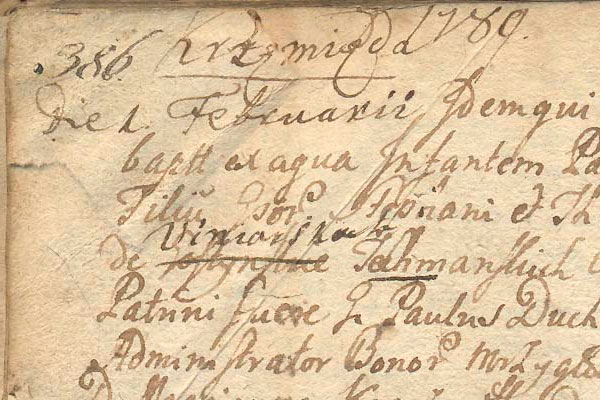 386. Krzemięda 1789.
Die 1. Februarii Idemqui
bapti ex aqua Infantem Pa
Filiū Gsorū et Th
de Techmanskich
Patrini fuere G Paulus Duch
Administrator Bonorū Mrzygło